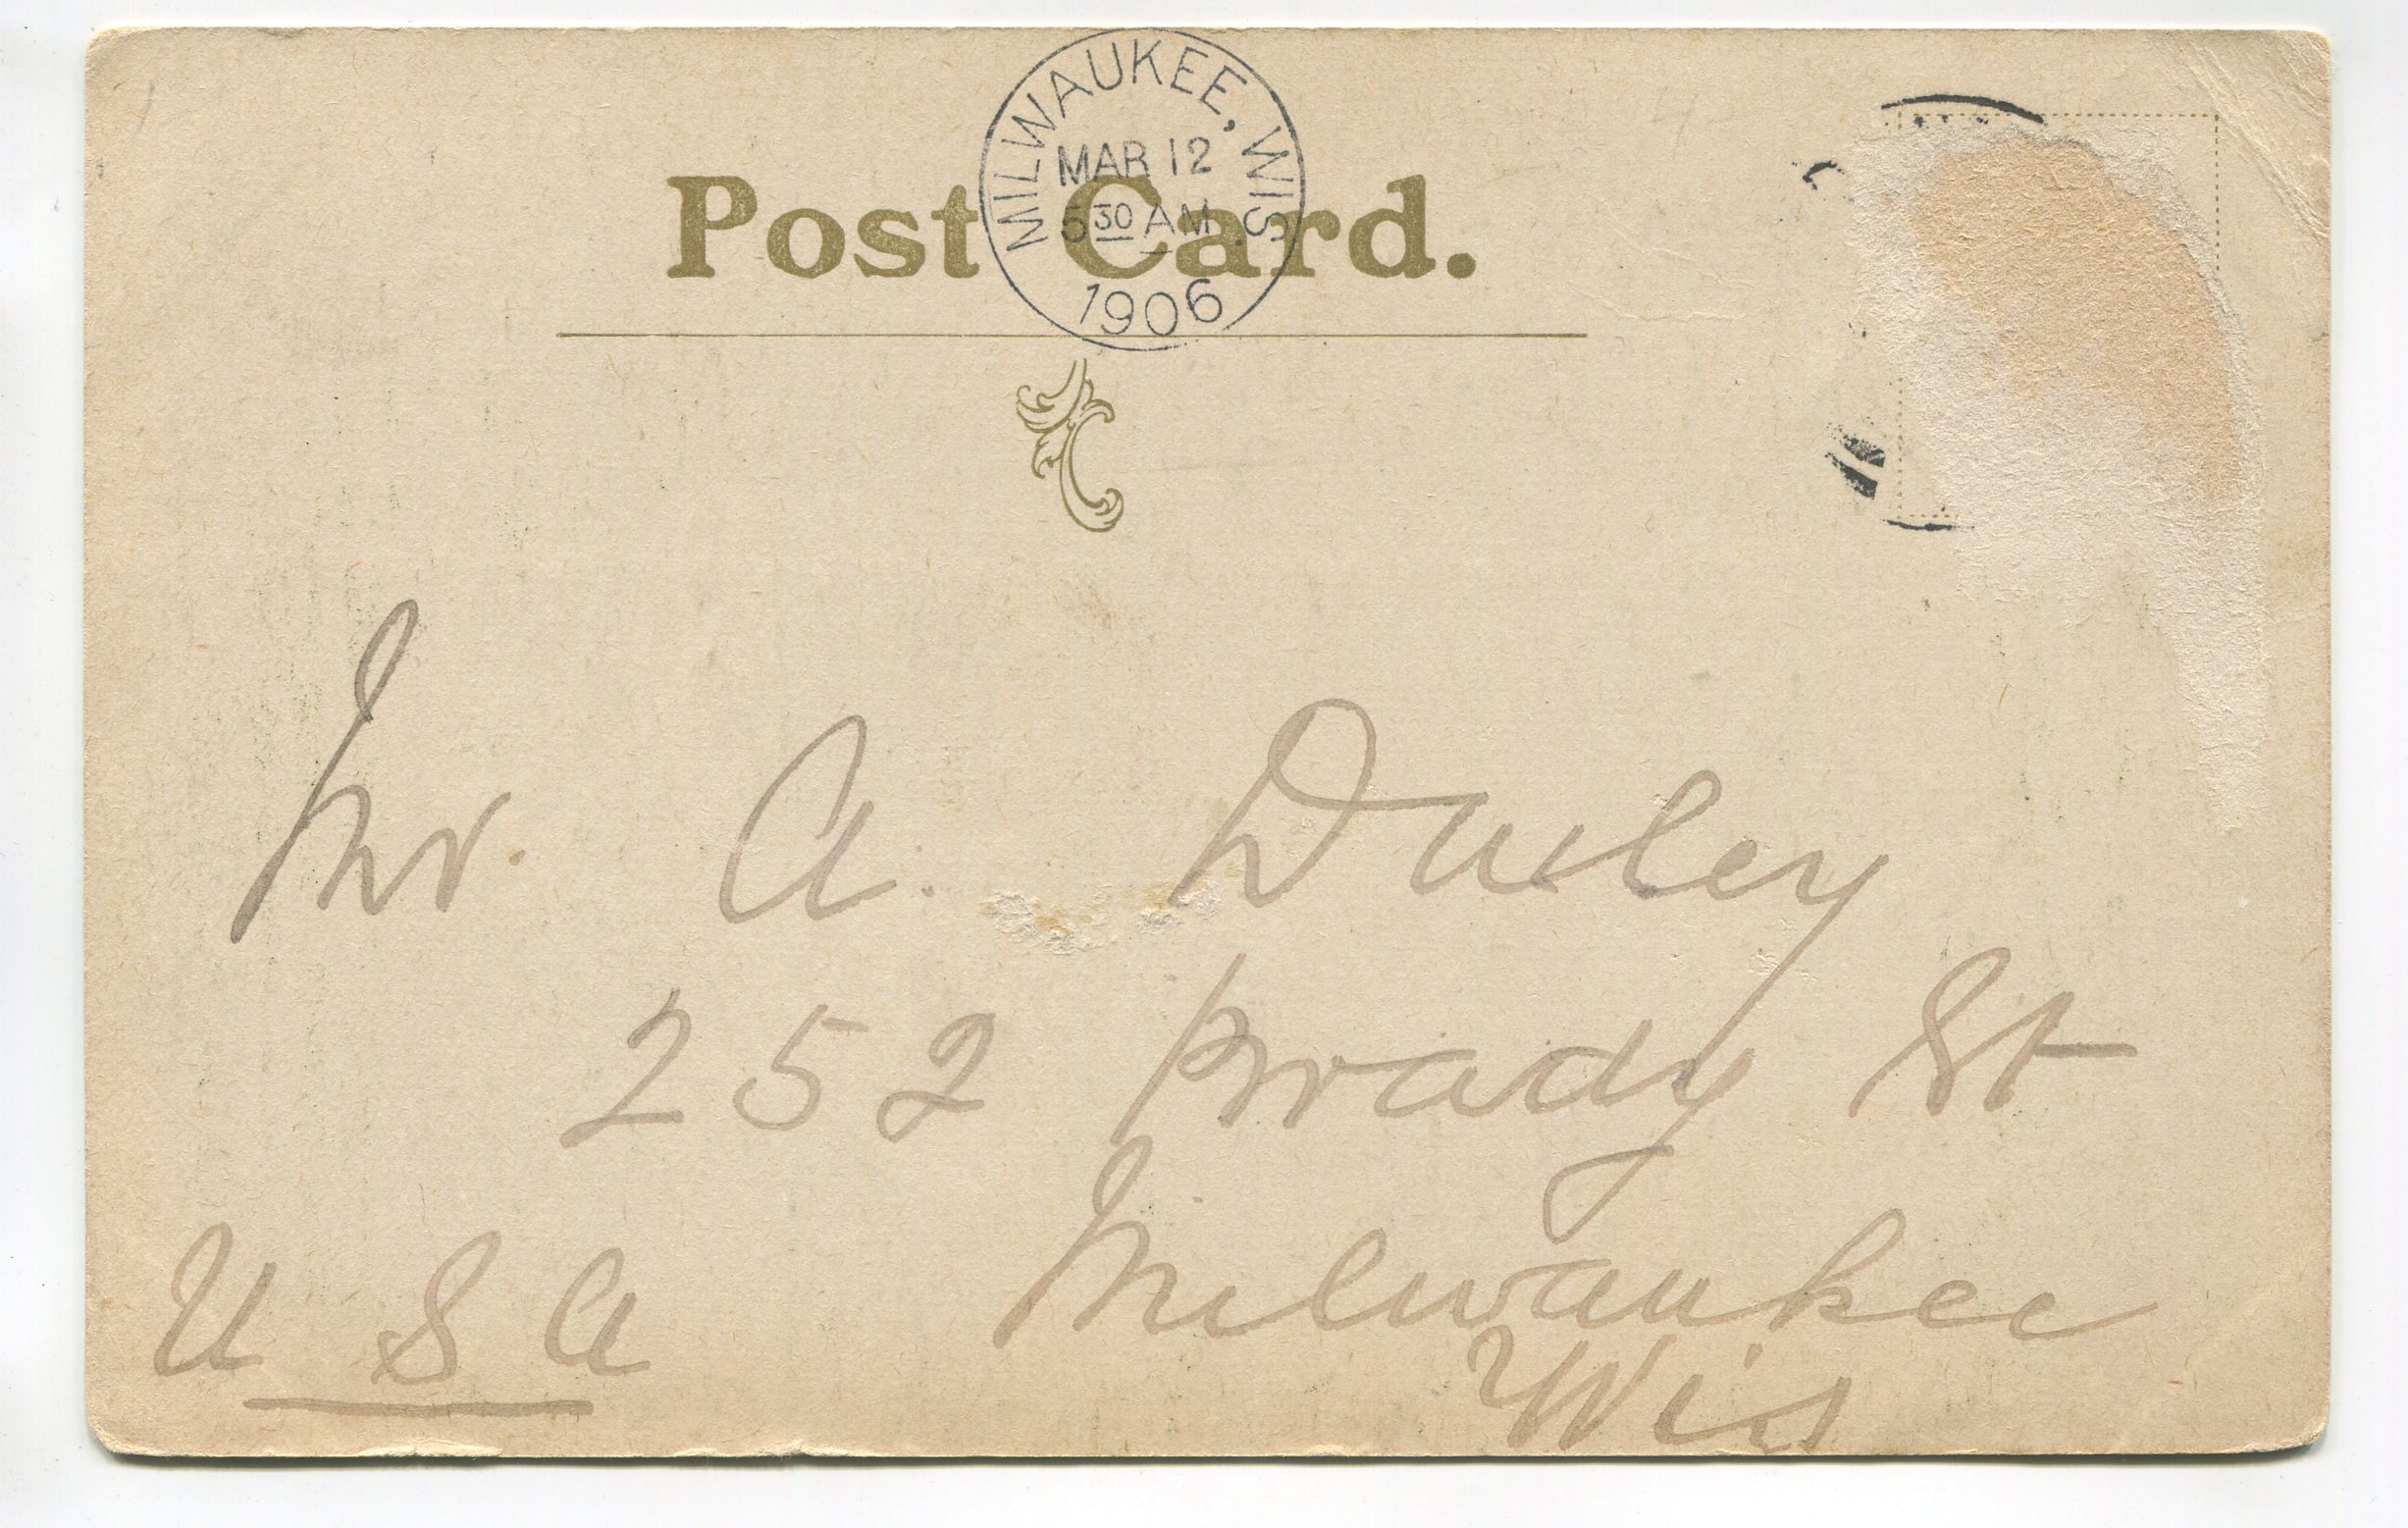 MILWAUKEE, WIS.
MAR 12
5 30 AM
1906
Post Card.
Mr. A.
252 Brady St
Milwaukee
Wis
U S A